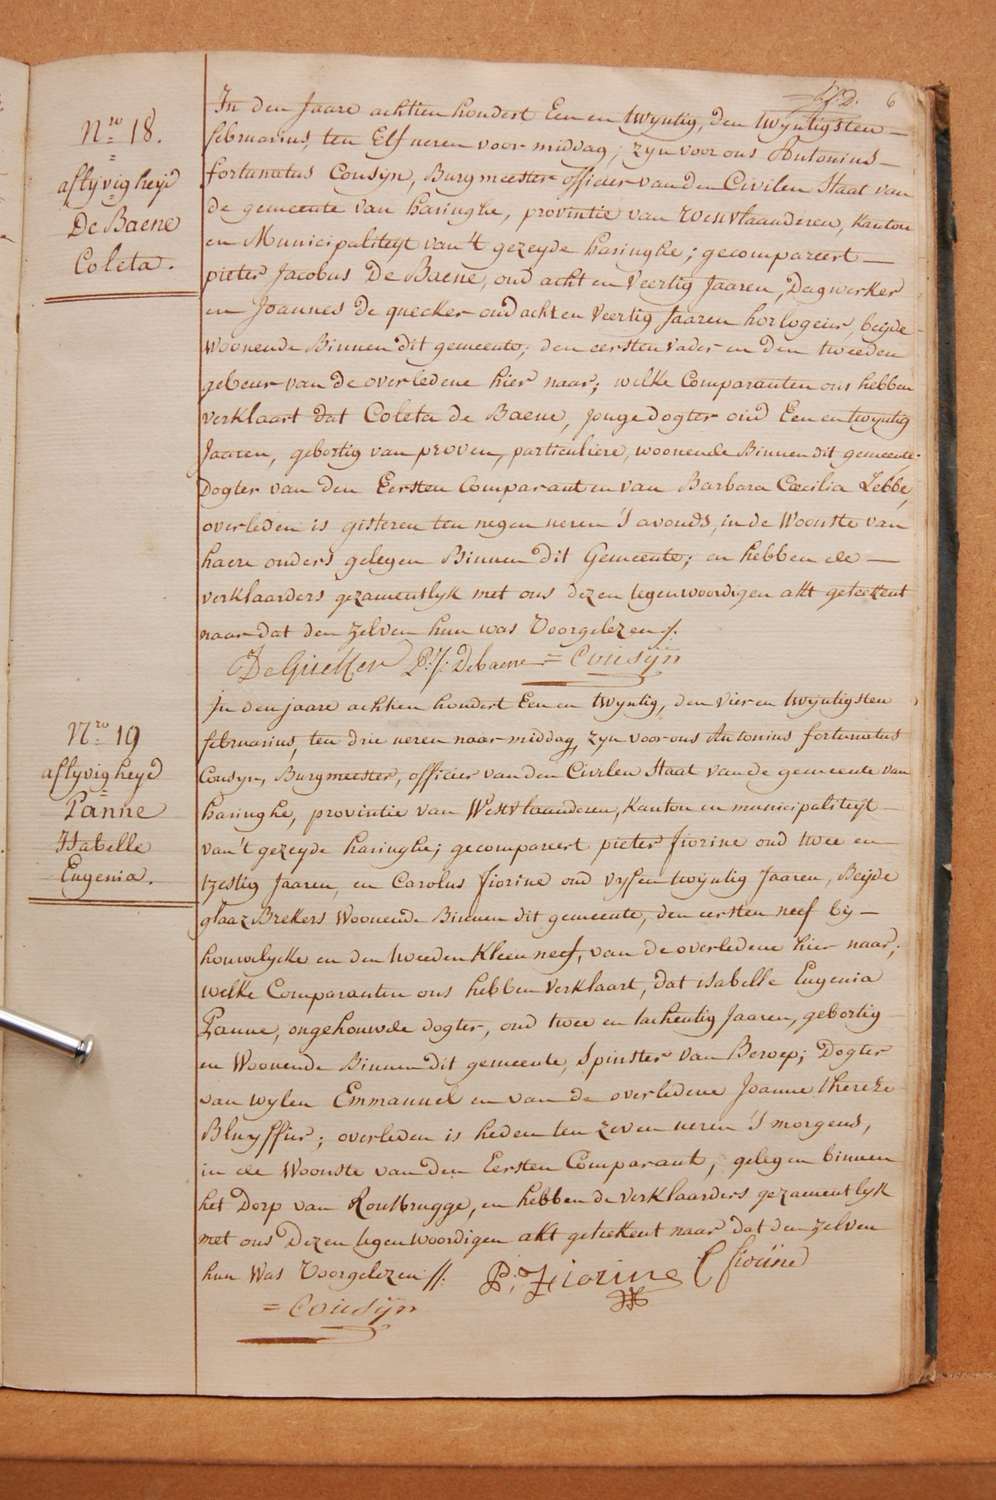 6
Nro 18.
aflyvigheyd
De Baene
Coleta.
In den Jaare achtien hondert Een en twyntig, den twyntigsten
februarius, ten Elf ueren voor middag; zyn voor ons Antonius
fortunatus Cousyn, Burgmeester officier van den Civilen Staat van
de gemeente van haringhe, provintie van Westvlaanderen, Kanton
en Municipaliteyt van 't gezeyde haringhe; gecompareert
pieter Jacobus De Baene, oud acht en Veertig Jaaren, Dagwerker
en Joannes de quecker oud acht en Veertig Jaaren horlogeur, beyde
Woonende Binnen dit gemeente; den eersten vader en den tweeden
gebeur van de overledene hier naar; welke Comparanten ons hebben
verklaart dat Coleta de Baene, Jonge Dogter oud Een en twyntig
Jaaren, gebortig van proven, particuliere, woonende Binnen dit gemeente
Dogter van den Eersten Comparant en van Barbara Cæcilia Lebbe,
overleden is gisteren ten negen ueren 's avonds, in de Woonste van
haere ouders gelegen Binnen dit Gemeente; en hebben de
verklaarders gezamentlyk met ons dezen tegenwoordigen akt geteekent
naar dat den zelven hun was Voorgelezen /.
De Quecker P: J: Debaene = Cousÿn
Nro 19
aflyvigheyd
Panne
Isabelle
Eugenia.
In den jaare achtien hondert Een en twyntig, den vier en twyntigsten
februarius, ten drie ueren naar middag, zyn voor ons Antonius fortunatus
Cousyn, Burgmeester, officier van den Civilen Staat van de gemeente van
haringhe, provintie van Westvlaanderen, Kanton en municipaliteyt
van 't gezeyde haringhe; gecompareert pieter fiorine oud twee en
tzestig Jaaren, en Carolus fiorine oud vyf en twyntig Jaaren, Beyde
glaaz Brekers Woonende Binnen dit gemeente, den eersten neef by
houwelycke en den tweeden Kleen neef, van de overledene hier naar;
welke Comparanten ons hebben verklaart, dat isabelle Eugenia
Panne, ongehouwde dogter, oud twee en tachentig Jaaren, gebortig
en Woonende Binnen dit gemeente, Spinster van Beroep; Dogter
van wylen Emmanuel en van de overledene Joanne thereze
Bluyssier; overleden is heden ten zeven ueren 's morgens,
in de Woonste van den Eersten Comparant, gelegen binnen
het Dorp van Rousbrugge, en hebben de verklaarders gezamentlyk
met ons Dezen tegenwoordigen akt geteekent naar dat den zelven
hun Was Voorgelezen //. P: Fiorine C fiorine
= Cousÿn